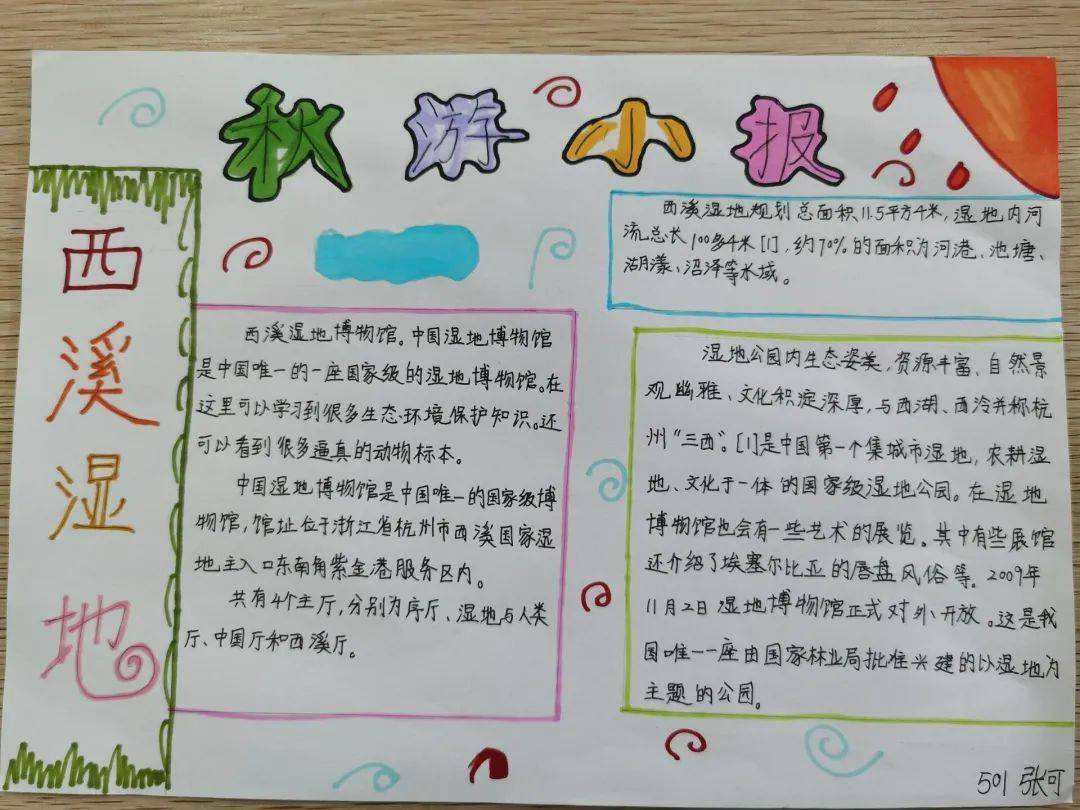 秋游小报
西溪湿地
西溪湿地规划总面积11.5平方4米,湿地内河
流总长100多4米[1],约70%的面积为河港、池塘、
湖漾、沼泽等水域。
西溪湿地博物馆。中国湿地博物馆
是中国唯一的一座国家级的湿地博物馆。在
这里可以学习到很多生态环境保护知识。还
可以看到很多逼真的动物标本。
中国湿地博物馆是中国唯一的国家级博
物馆,馆址位于浙江省杭州市西溪国家湿
地主入口东南角紫金港服务区内。
共有4个主厅,分别为序厅、湿地与人类
厅、中国厅和西溪厅。
湿地公园内生态姿美,资源丰富、自然景
观幽雅、文化积淀深厚,与西湖、西泠并称杭
州“三西”。[1]是中国第一个集城市湿地,农耕湿
地、文化于一体的国家级湿地公园。在湿地
博物馆也会有一些艺术的展览。其中有些展馆
还介绍了埃塞尔比亚的唇盘风俗等。2009年
11月2日湿地博物馆正式对外开放。这是我
国唯一一座由国家林业局批准兴建的以湿地为
主题的公园。
501 张可